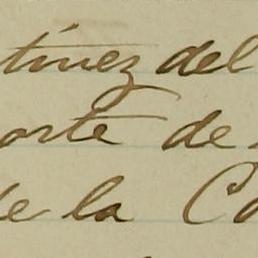 tinez del
orte de
de la Co